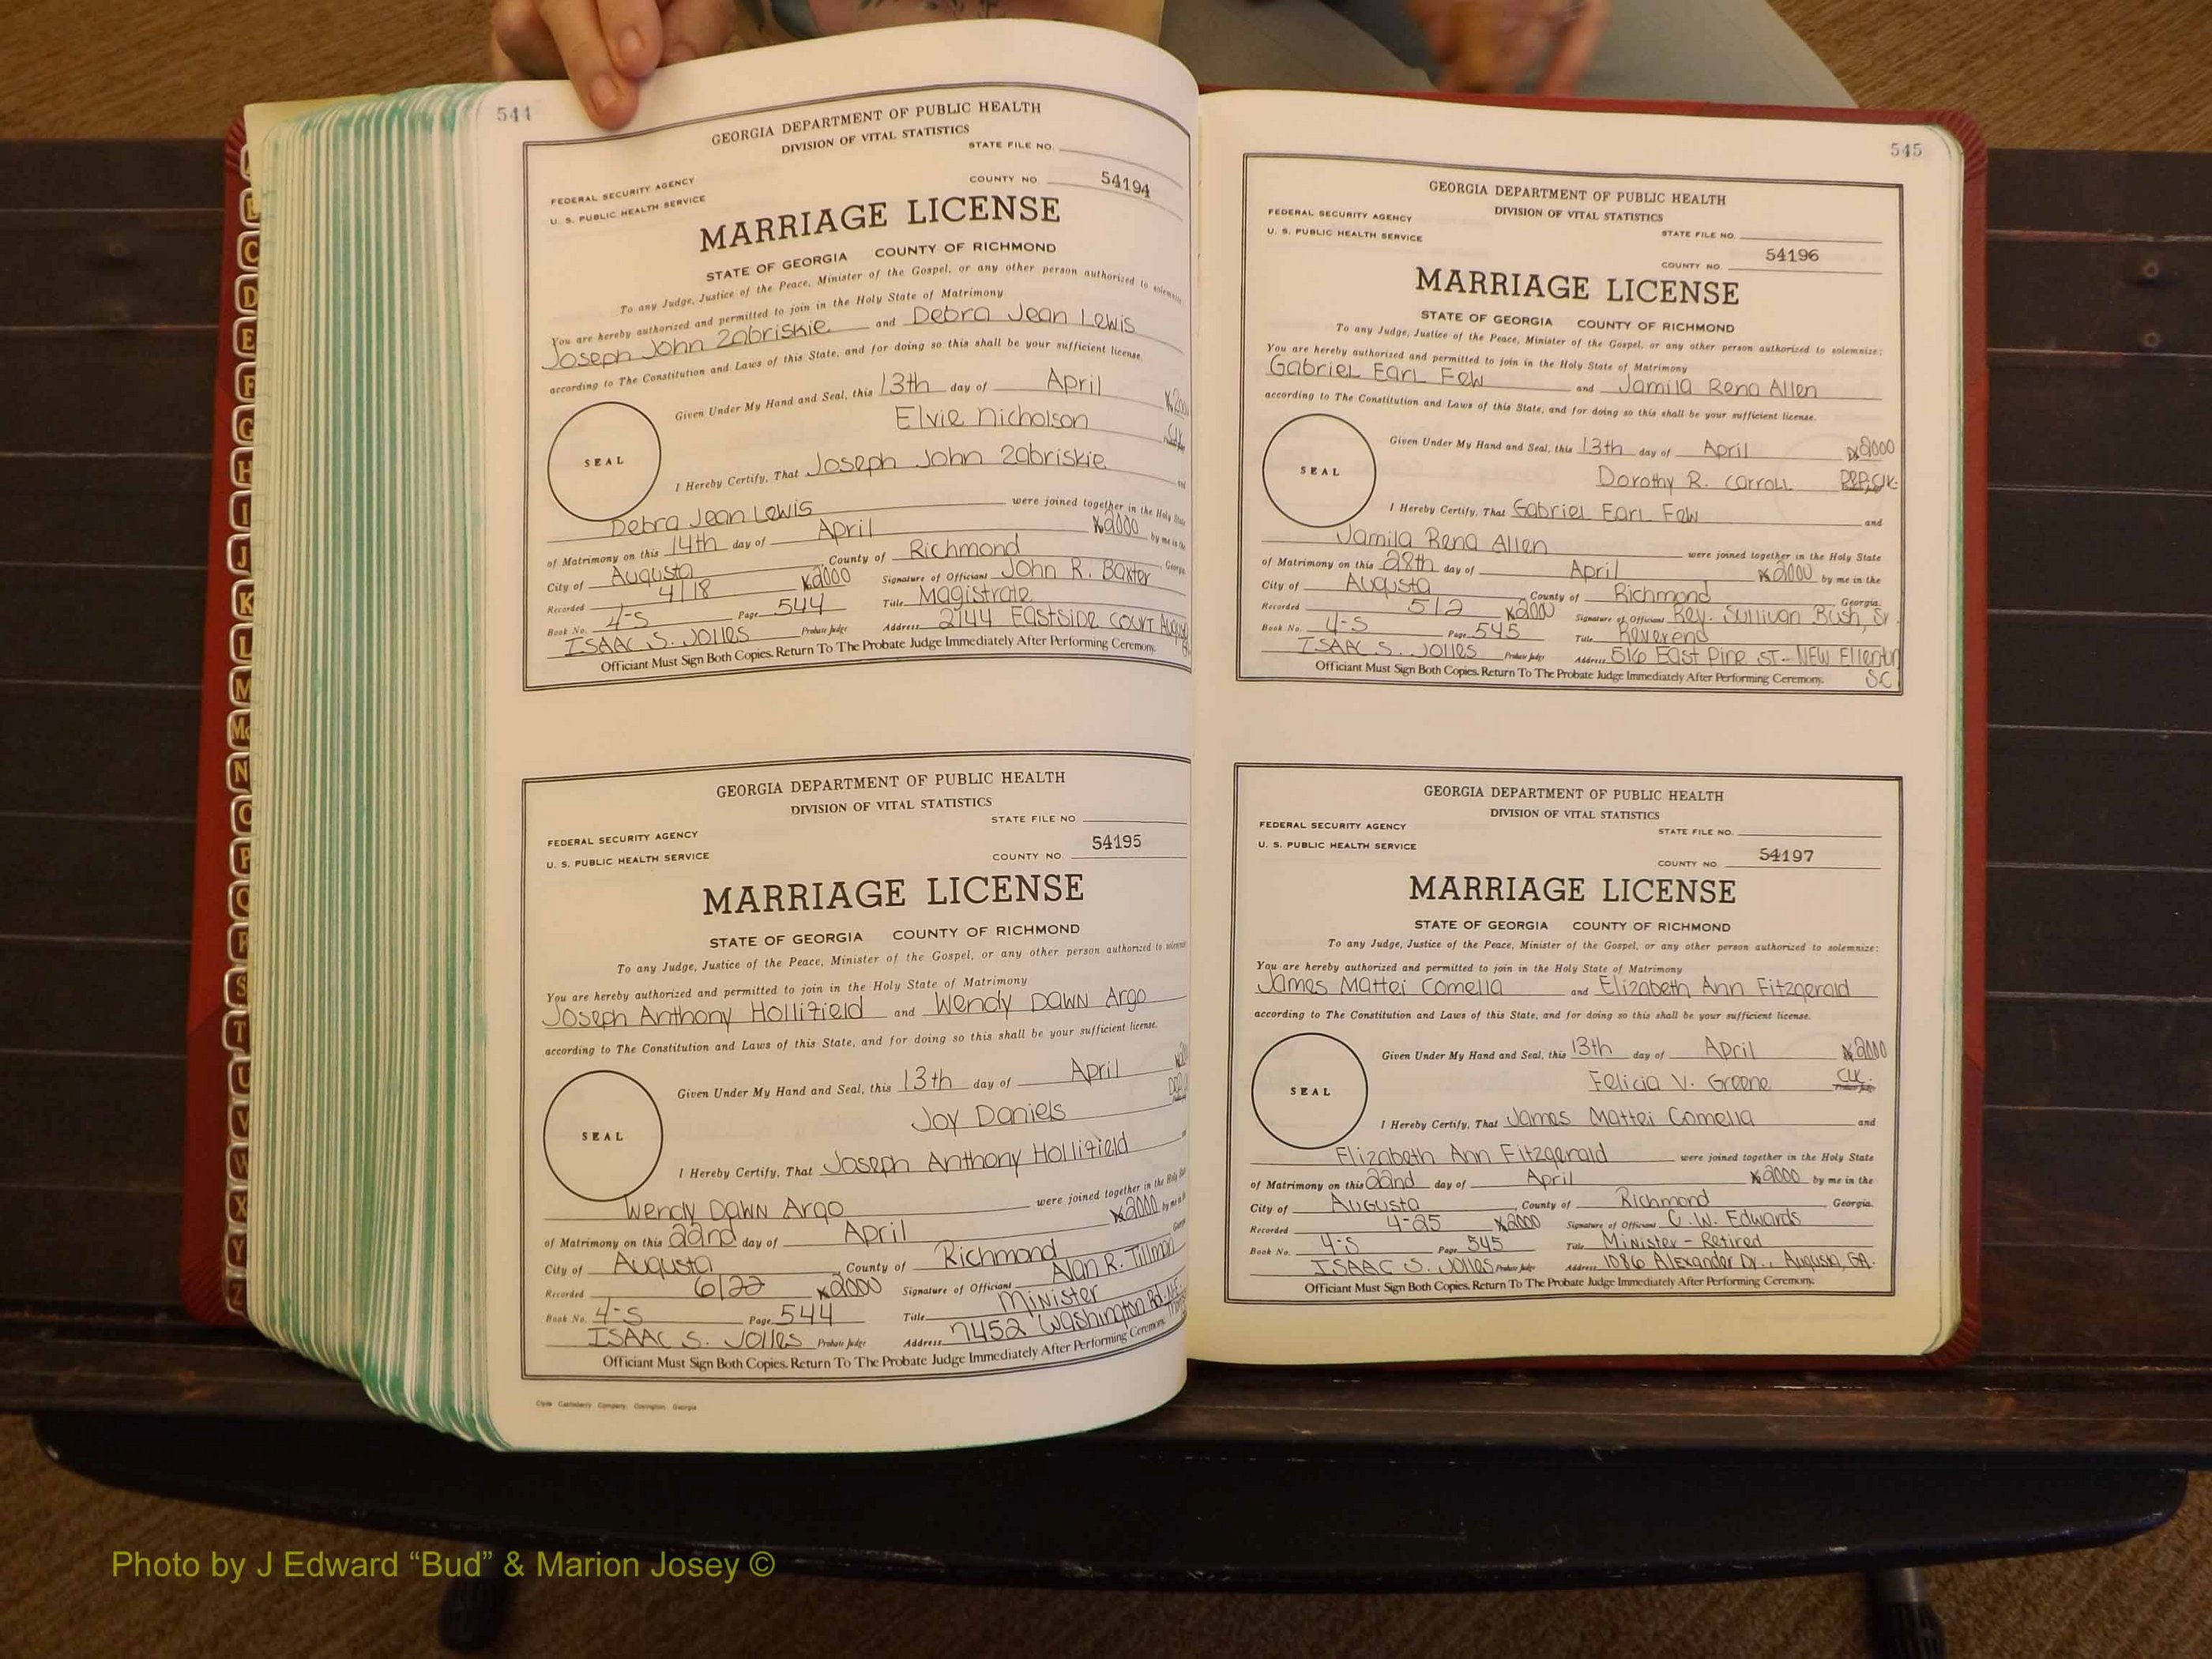 544
GEORGIA DEPARTMENT OF PUBLIC HEALTH
DIVISION OF VITAL STATISTICS
STATE FILE NO.
FEDERAL SECURITY AGENCY
U. S. PUBLIC HEALTH SERVICE
COUNTY NO 54194
MARRIAGE LICENSE
STATE OF GEORGIA COUNTY OF RICHMOND
To any Judge, Justice of the Peace, Minister of the Gospel, or any other person authorized to solemnize
You are hereby authorized and permitted to join in the Holy State of Matrimony
Joseph John Zabriskie and Debra Jean Lewis
according to The Constitution and Laws of this State, and for doing so this shall be your sufficient license.
Given Under My Hand and Seal, this 13th day of April
Elvie Nicholson Clk
SEAL
I Hereby Certify, That Joseph John Zabriskie and
Debra Jean Lewis were joined together in the Holy State
of Matrimony on this 14th day of April 2000 by me in the
City of Augusta County of Richmond Georgia
Recorded 4/18 2000 Signature of Officiant John R. Baxter
Book No. 4-S Page 544 Title Magistrate
ISAAC S. JOLLES Probate Judge Address 2144 Eastside Court
Officiant Must Sign Both Copies. Return To The Probate Judge Immediately After Performing Ceremony.
GEORGIA DEPARTMENT OF PUBLIC HEALTH
DIVISION OF VITAL STATISTICS
STATE FILE NO
FEDERAL SECURITY AGENCY
U. S. PUBLIC HEALTH SERVICE
COUNTY NO. 54195
MARRIAGE LICENSE
STATE OF GEORGIA COUNTY OF RICHMOND
To any Judge, Justice of the Peace, Minister of the Gospel, or any other person authorized to solemnize
You are hereby authorized and permitted to join in the Holy State of Matrimony
Joseph Anthony Hollifield and Wendy Dawn Argo
according to The Constitution and Laws of this State, and for doing so this shall be your sufficient license.
Given Under My Hand and Seal, this 13th day of April
Joy Daniels
SEAL
I Hereby Certify, That Joseph Anthony Hollifield
Wendy Dawn Argo were joined together in the Holy State
of Matrimony on this 22nd day of April 2000 by me in
City of Augusta County of Richmond
Recorded 6/22 2000 Signature of Officiant Alan R. Tillman
Book No. 4-S Page 544 Title Minister
ISAAC S. JOLLES Probate Judge Address 7452 Washington Rd. N.E.
Officiant Must Sign Both Copies. Return To The Probate Judge Immediately After Performing Ceremony.
Clyde Castleberry Company, Covington, Georgia
545
GEORGIA DEPARTMENT OF PUBLIC HEALTH
DIVISION OF VITAL STATISTICS
FEDERAL SECURITY AGENCY
U. S. PUBLIC HEALTH SERVICE
STATE FILE NO.
COUNTY NO. 54196
MARRIAGE LICENSE
STATE OF GEORGIA COUNTY OF RICHMOND
To any Judge, Justice of the Peace, Minister of the Gospel, or any other person authorized to solemnize:
You are hereby authorized and permitted to join in the Holy State of Matrimony
Gabriel Earl Few and Jamila Rena Allen
according to The Constitution and Laws of this State, and for doing so this shall be your sufficient license.
Given Under My Hand and Seal, this 13th day of April 2000
Dorothy R. Carroll Dep. Clk.
SEAL
I Hereby Certify, That Gabriel Earl Few and
Jamila Rena Allen were joined together in the Holy State
of Matrimony on this 28th day of April 2000 by me in the
City of Augusta County of Richmond Georgia.
Recorded 5/2 2000 Signature of Officiant Rev. Sullivan Bush, Sr.
Book No. 4-S Page 545 Title Reverend
ISAAC S. JOLLES Probate Judge Address 516 East Pine St. - New Ellenton
Officiant Must Sign Both Copies. Return To The Probate Judge Immediately After Performing Ceremony. SC
GEORGIA DEPARTMENT OF PUBLIC HEALTH
DIVISION OF VITAL STATISTICS
FEDERAL SECURITY AGENCY
STATE FILE NO.
U. S. PUBLIC HEALTH SERVICE
COUNTY NO. 54197
MARRIAGE LICENSE
STATE OF GEORGIA COUNTY OF RICHMOND
To any Judge, Justice of the Peace, Minister of the Gospel, or any other person authorized to solemnize:
You are hereby authorized and permitted to join in the Holy State of Matrimony
James Mattei Comella and Elizabeth Ann Fitzgerald
according to The Constitution and Laws of this State, and for doing so this shall be your sufficient license.
Given Under My Hand and Seal, this 13th day of April 2000
Felicia V. Greene Clk.
SEAL
I Hereby Certify, That James Mattei Comella and
Elizabeth Ann Fitzgerald were joined together in the Holy State
of Matrimony on this 22nd day of April 2000 by me in the
City of Augusta County of Richmond Georgia.
Recorded 4-25 2000 Signature of Officiant C.W. Edwards
Book No. 4-S Page 545 Title Minister - Retired
ISAAC S. JOLLES Probate Judge Address 1086 Alexander Dr., Augusta, GA.
Officiant Must Sign Both Copies. Return To The Probate Judge Immediately After Performing Ceremony.
C
D
E
F
G
H
I
J
K
L
M
Mc
N
O
P
Q
R
S
T
U
V
W
X
Y
Z
Photo by J Edward “Bud” & Marion Josey ©